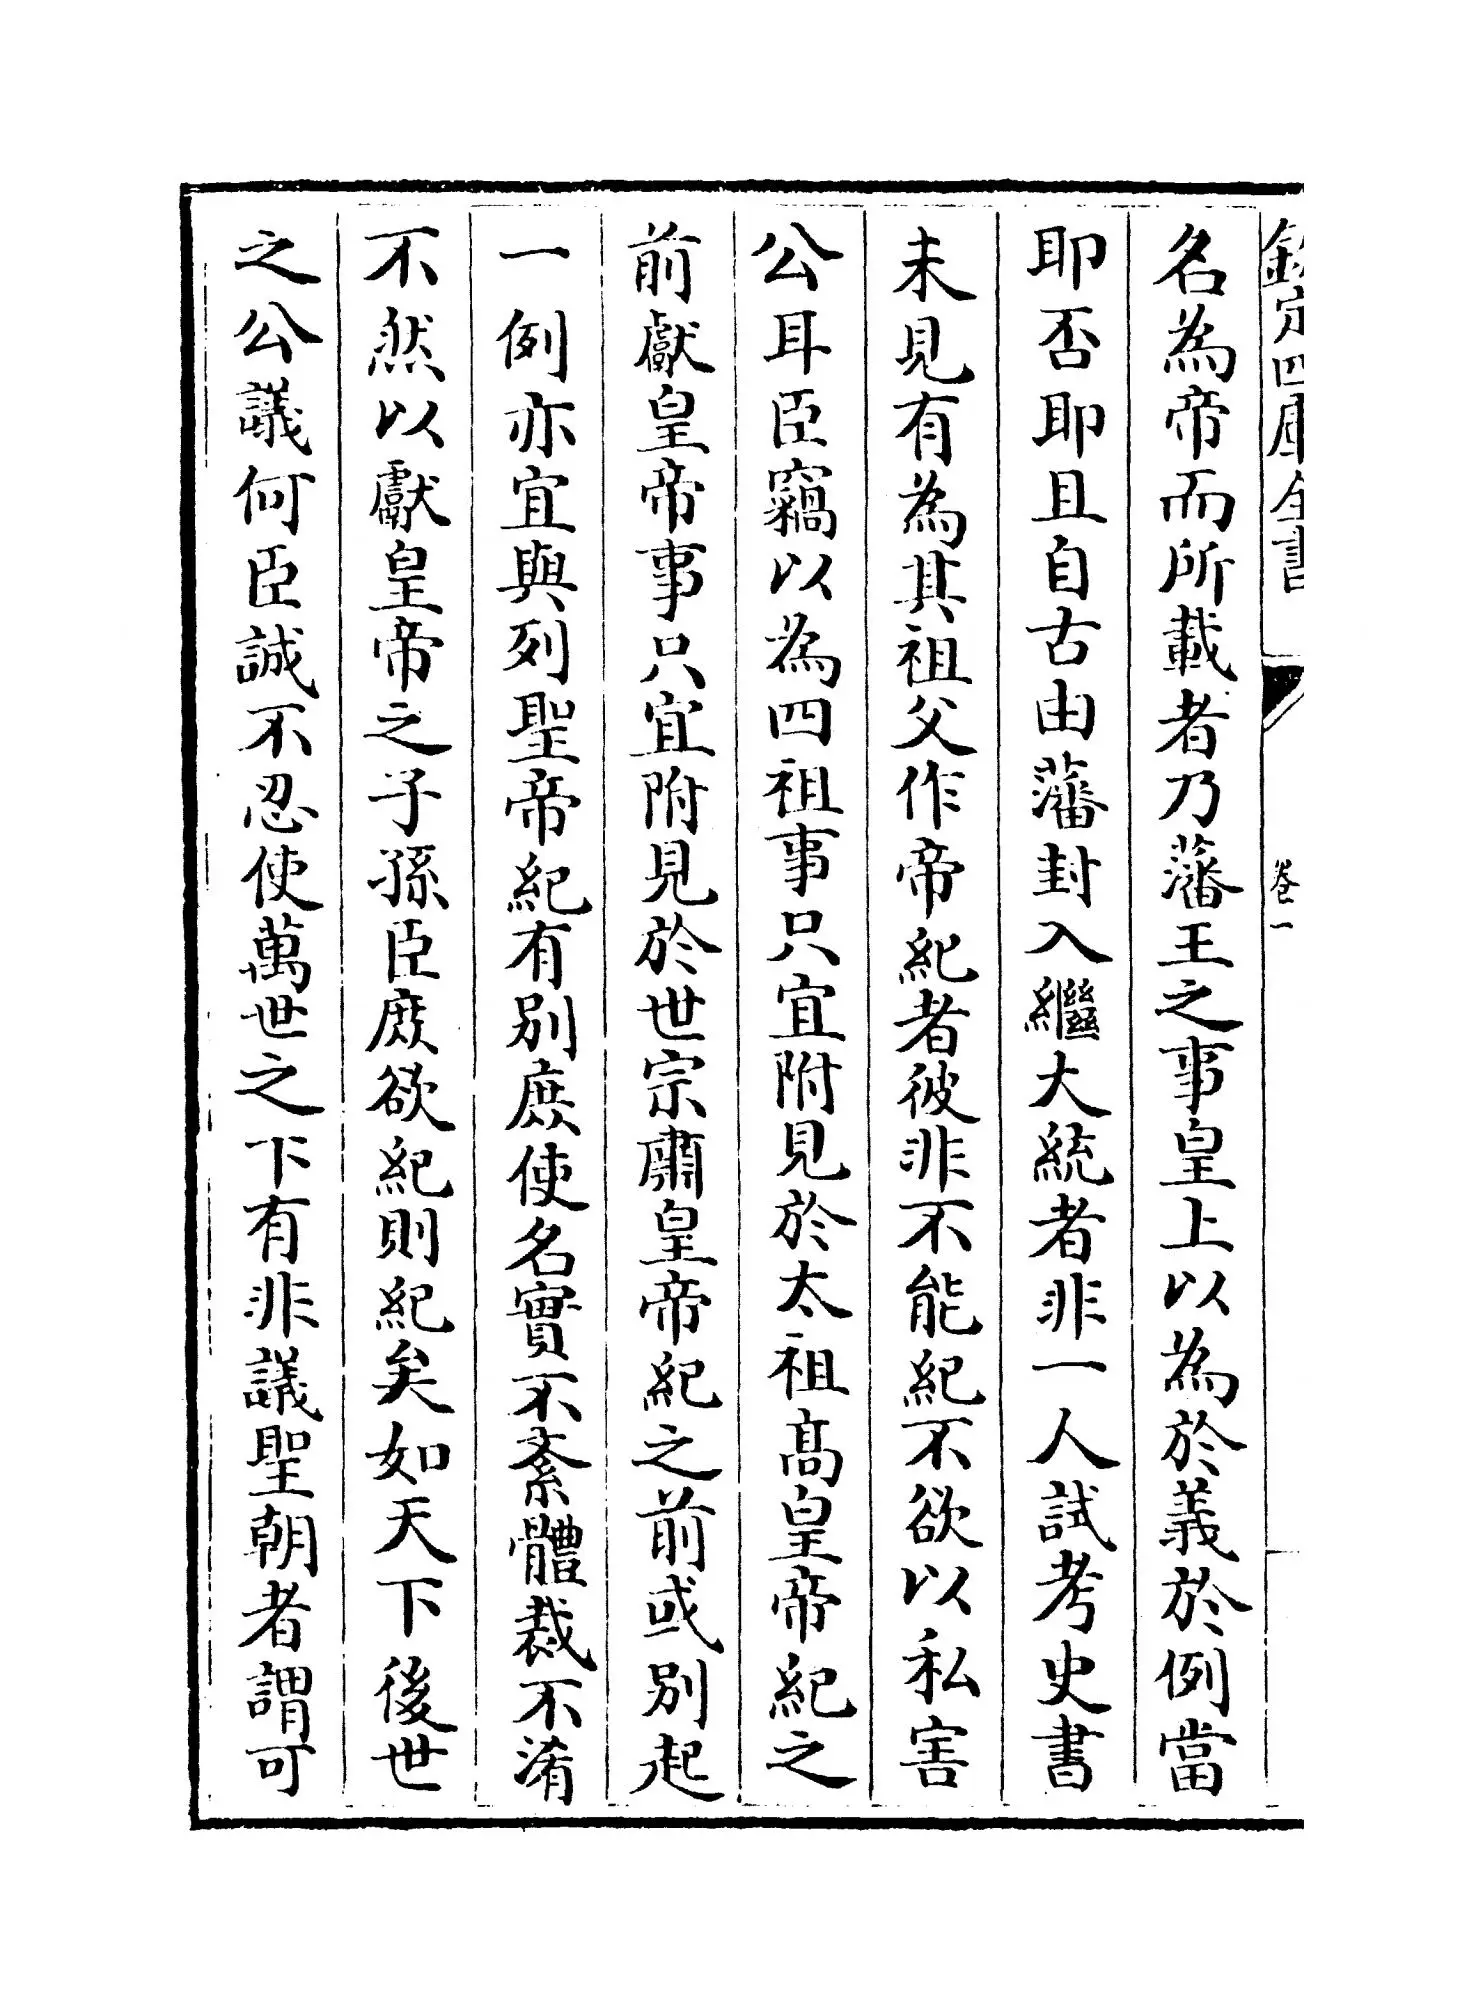 欽定四庫全書
卷一
名為帝而所載者乃藩王之事皇上以為於義於例當
耶否耶且自古由藩封入繼大統者非一人試考史書
未見有為其祖父作帝紀者彼非不能紀不欲以私害
公耳臣竊以為四祖事只宜附見於太祖高皇帝紀之
前獻皇帝事只宜附見於世宗肅皇帝紀之前或别起
一例亦宜與列聖帝紀有别庶使名實不紊體裁不淆
不然以獻皇帝之子孫臣庶欲紀則紀矣如天下後世
之公議何臣誠不忍使萬世之下有非議聖朝者謂可